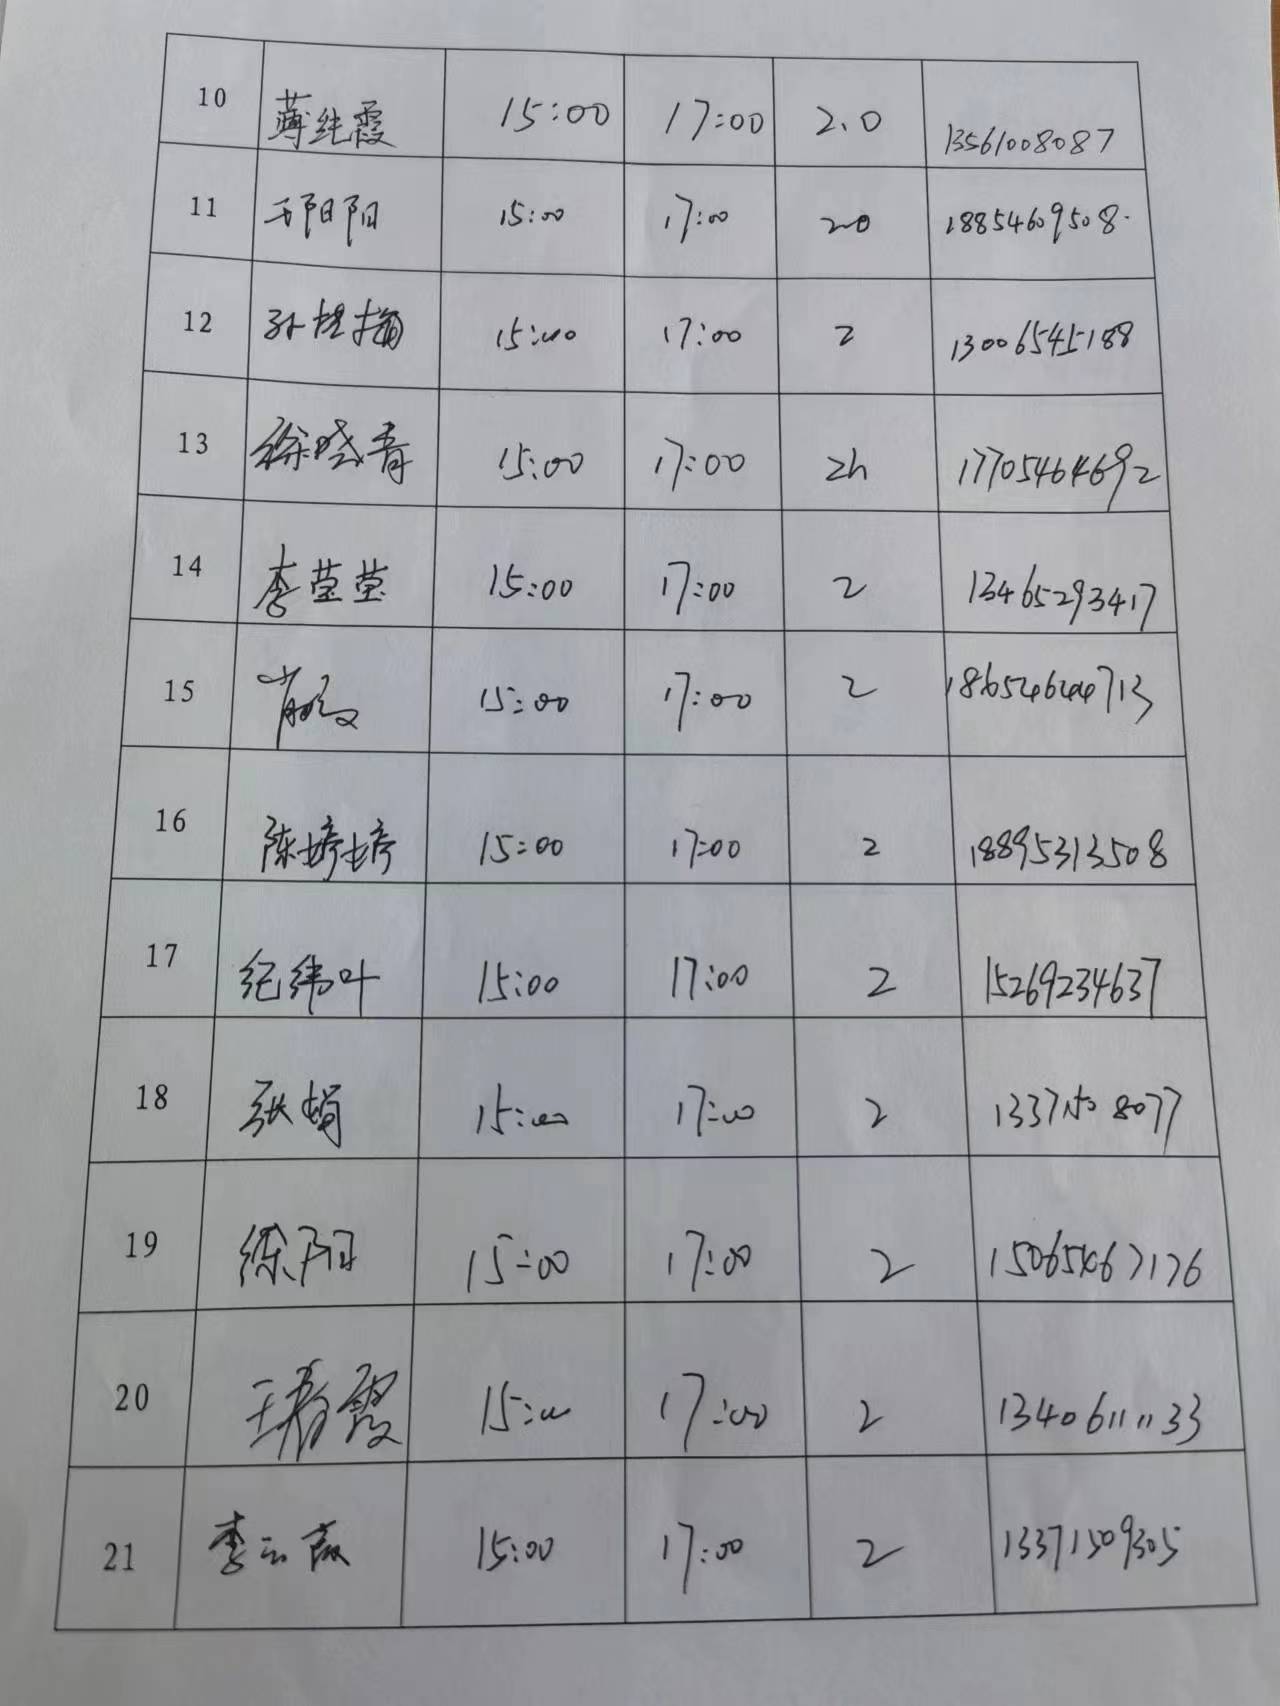 10 薄纯霞 15:00 17:00 2.0 13561008087
11 王阳阳 15:00 17:00 20 18854609508.
12 孙桂梅 15:00 17:00 2 13006545188
13 徐晓青 15:00 17:00 2h 17705464692
14 李莹莹 15:00 17:00 2 13465293417
15 15:00 17:00 2 18654644713
16 陈婷婷 15:00 17:00 2 18895313508
17 纪纬叶 15:00 17:00 2 15269234637
18 张娟 15:00 17:00 2 13371508077
19 徐阳 15:00 17:00 2 15065467176
20 王春霞 15:00 17:00 2 13406111133
21 李云霞 15:00 17:00 2 13371509305